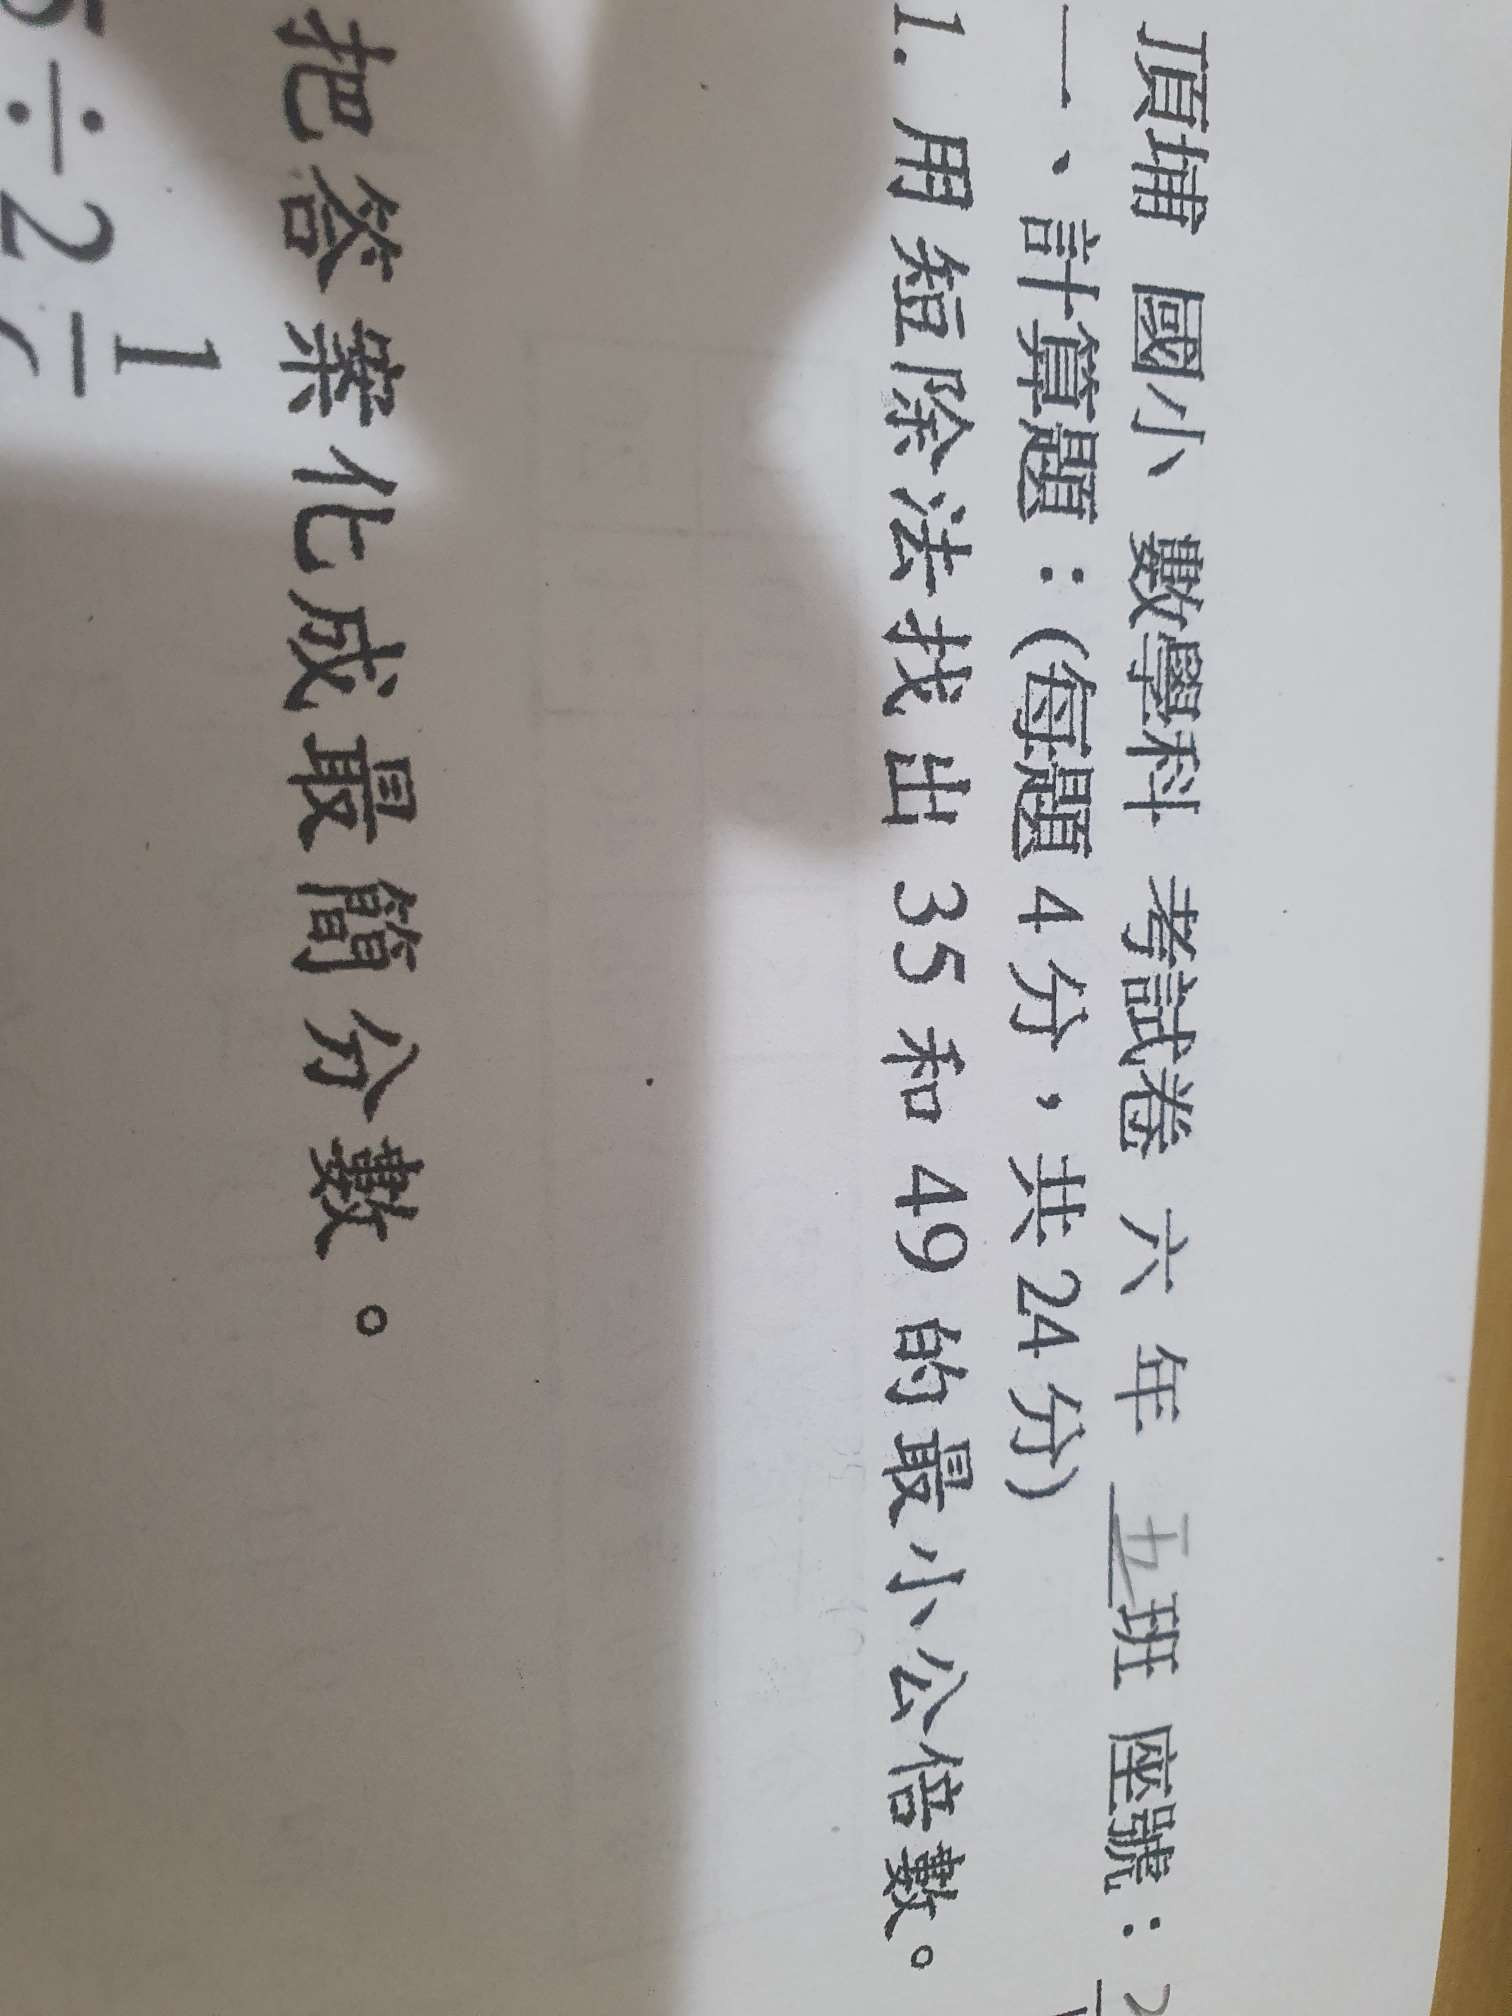 頂埔 國小 數學科 考試卷 六 年 五班 座號：
一、計算題：(每題 4 分，共 24 分)
1. 用短除法找出 35 和 49 的最小公倍數。
把答案化成最簡分數。
÷ 2 1